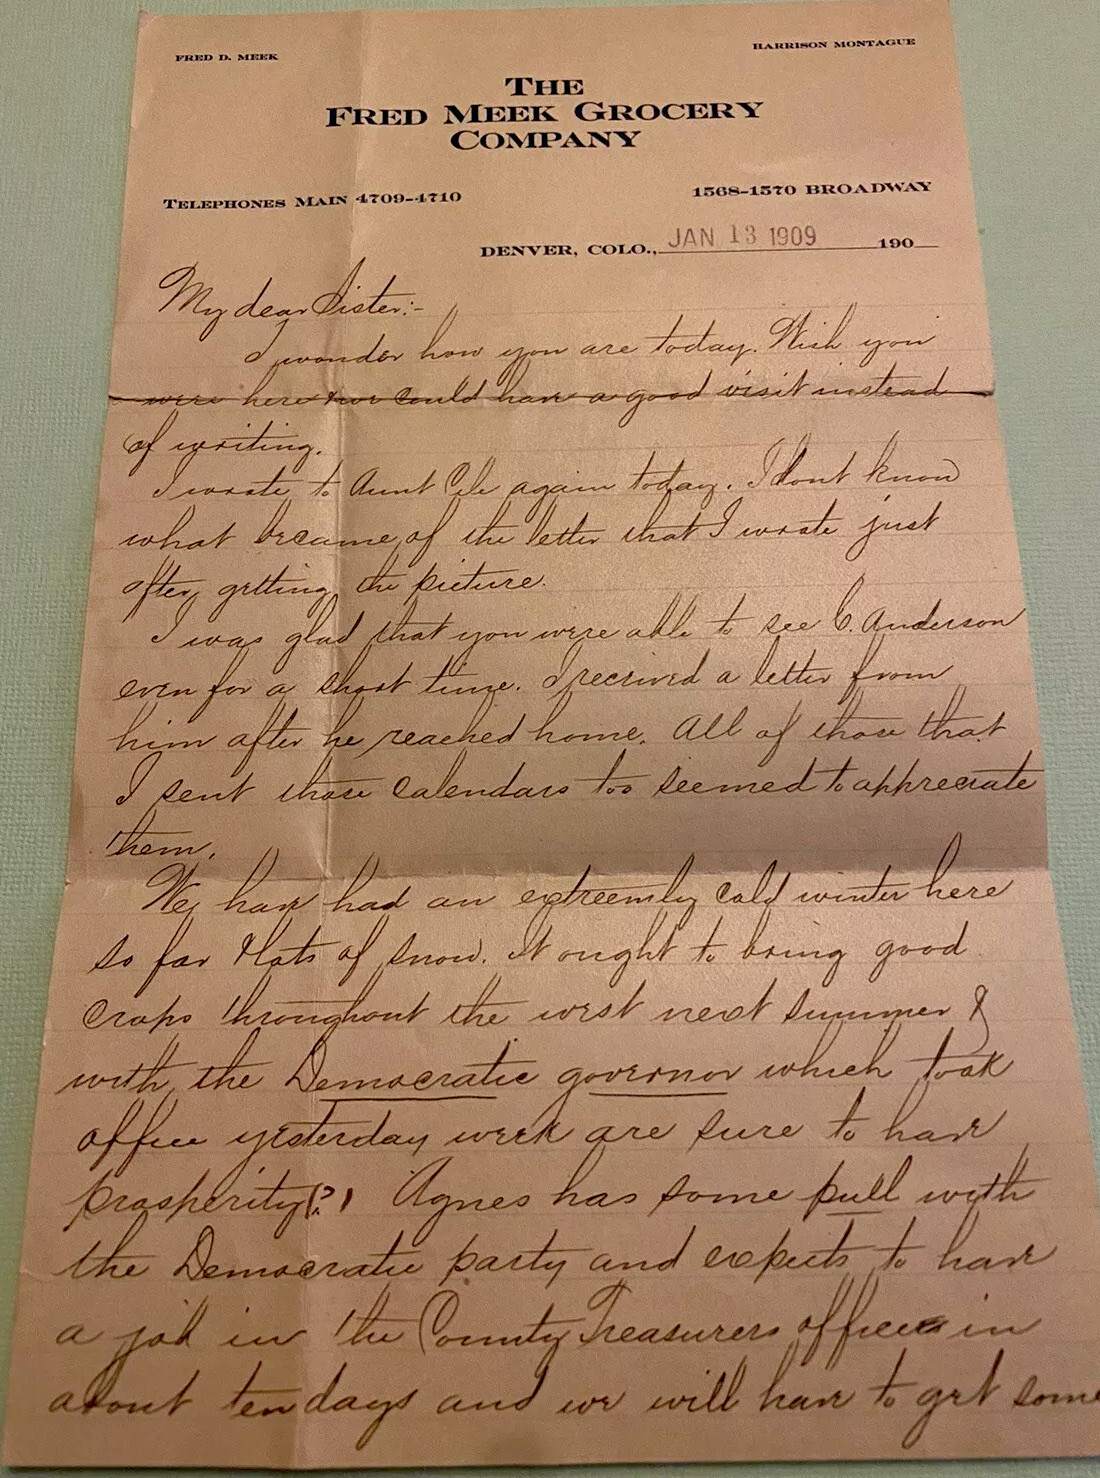 FRED D. MEEK
HARRISON MONTAGUE
THE
FRED MEEK GROCERY
COMPANY
TELEPHONES MAIN 4709-4710
1568-1570 BROADWAY
DENVER, COLO., JAN 13 1909 190
My dear Sister:-
I wonder how you are today. Wish you
were here & we could have a good visit instead
of writing.
I wrote to Aunt Cele again today. I dont know
what became of the letter that I wrote just
after getting the picture.
I was glad that you were able to see C. Anderson
even for a short time. I received a letter from
him after he reached home. All of those that
I sent those calendars too seemed to appreciate
them.
We have had an extreemly cold winter here
so far & lots of snow. It ought to bring good
crops throughout the west next summer &
with the Democratic governor which took
office yesterday week are sure to have
prosperity(?) Agnes has some pull with
the Democratic party and expects to have
a job in the County Treasurers office in
about ten days and we will have to get some